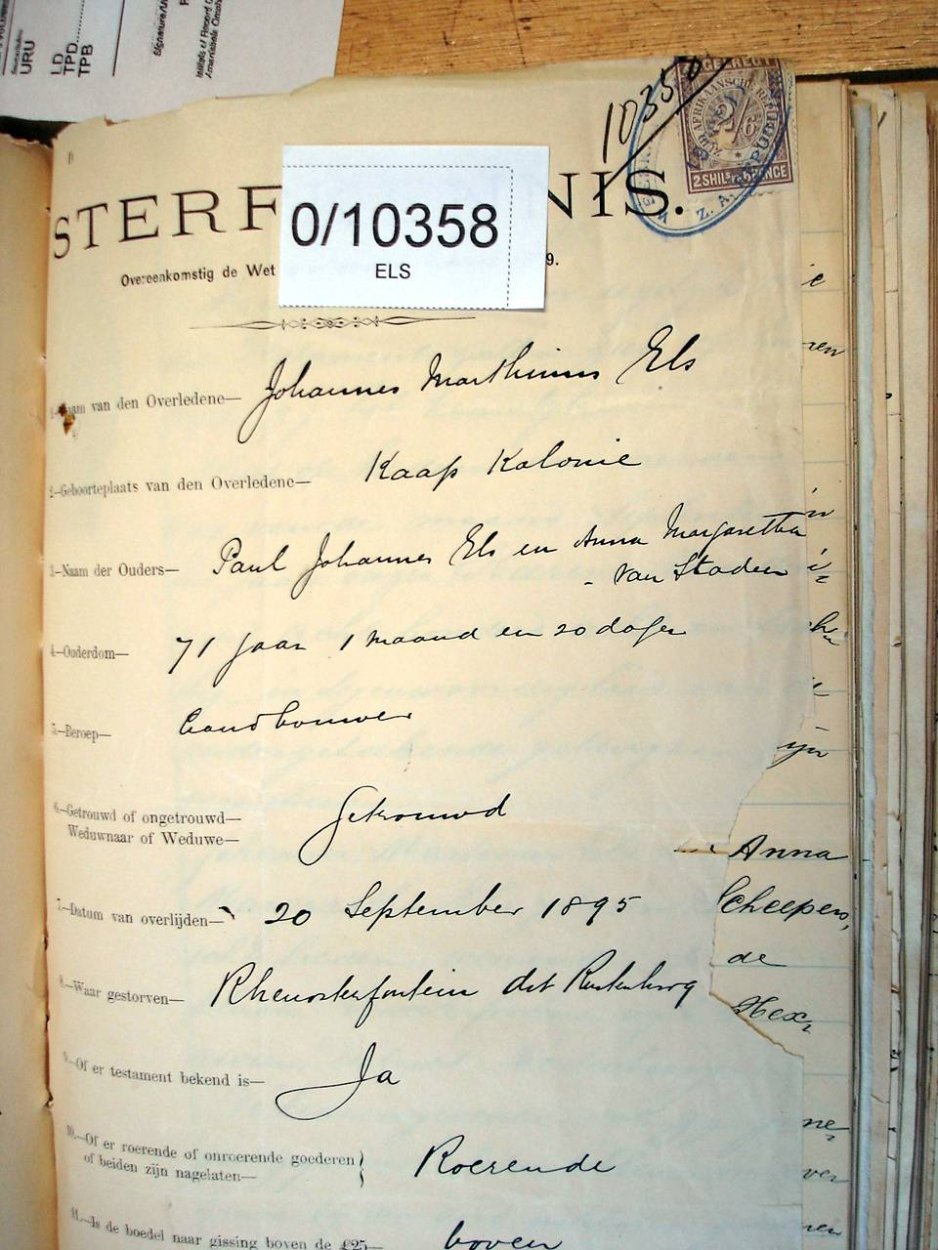 URU
LD
TPD
TPB
10358
ZUID AFRIKAANSCHE REPUBLIEK
2/6
2 SHILS 6 PENCE
Z. A. REPUBLIEK
STERF NIS.
0/10358
ELS
Overeenkomstig de Wet 9.
1.—Naam van den Overledene— Johannes Marthinus Els
2.—Geboorteplaats van den Overledene— Kaap Kolonie
3.—Naam der Ouders— Paul Johannes Els en Anna Margaretha
van Staden
4.—Ouderdom— 71 jaar 1 maand en 20 dagen
5.—Beroep— Landbouwer
6.—Getrouwd of ongetrouwd— Getrouwd
Weduwnaar of Weduwe—
Anna
7.—Datum van overlijden— 20 September 1895
Scheepers,
de
8.—Waar gestorven— Rhenosterfontein dist Rustenburg
Hex
9.—Of er testament bekend is— Ja
10.—Of er roerende of onroerende goederen
of beiden zijn nagelaten— Roerende
11.—Is de boedel naar gissing boven de £25— boven